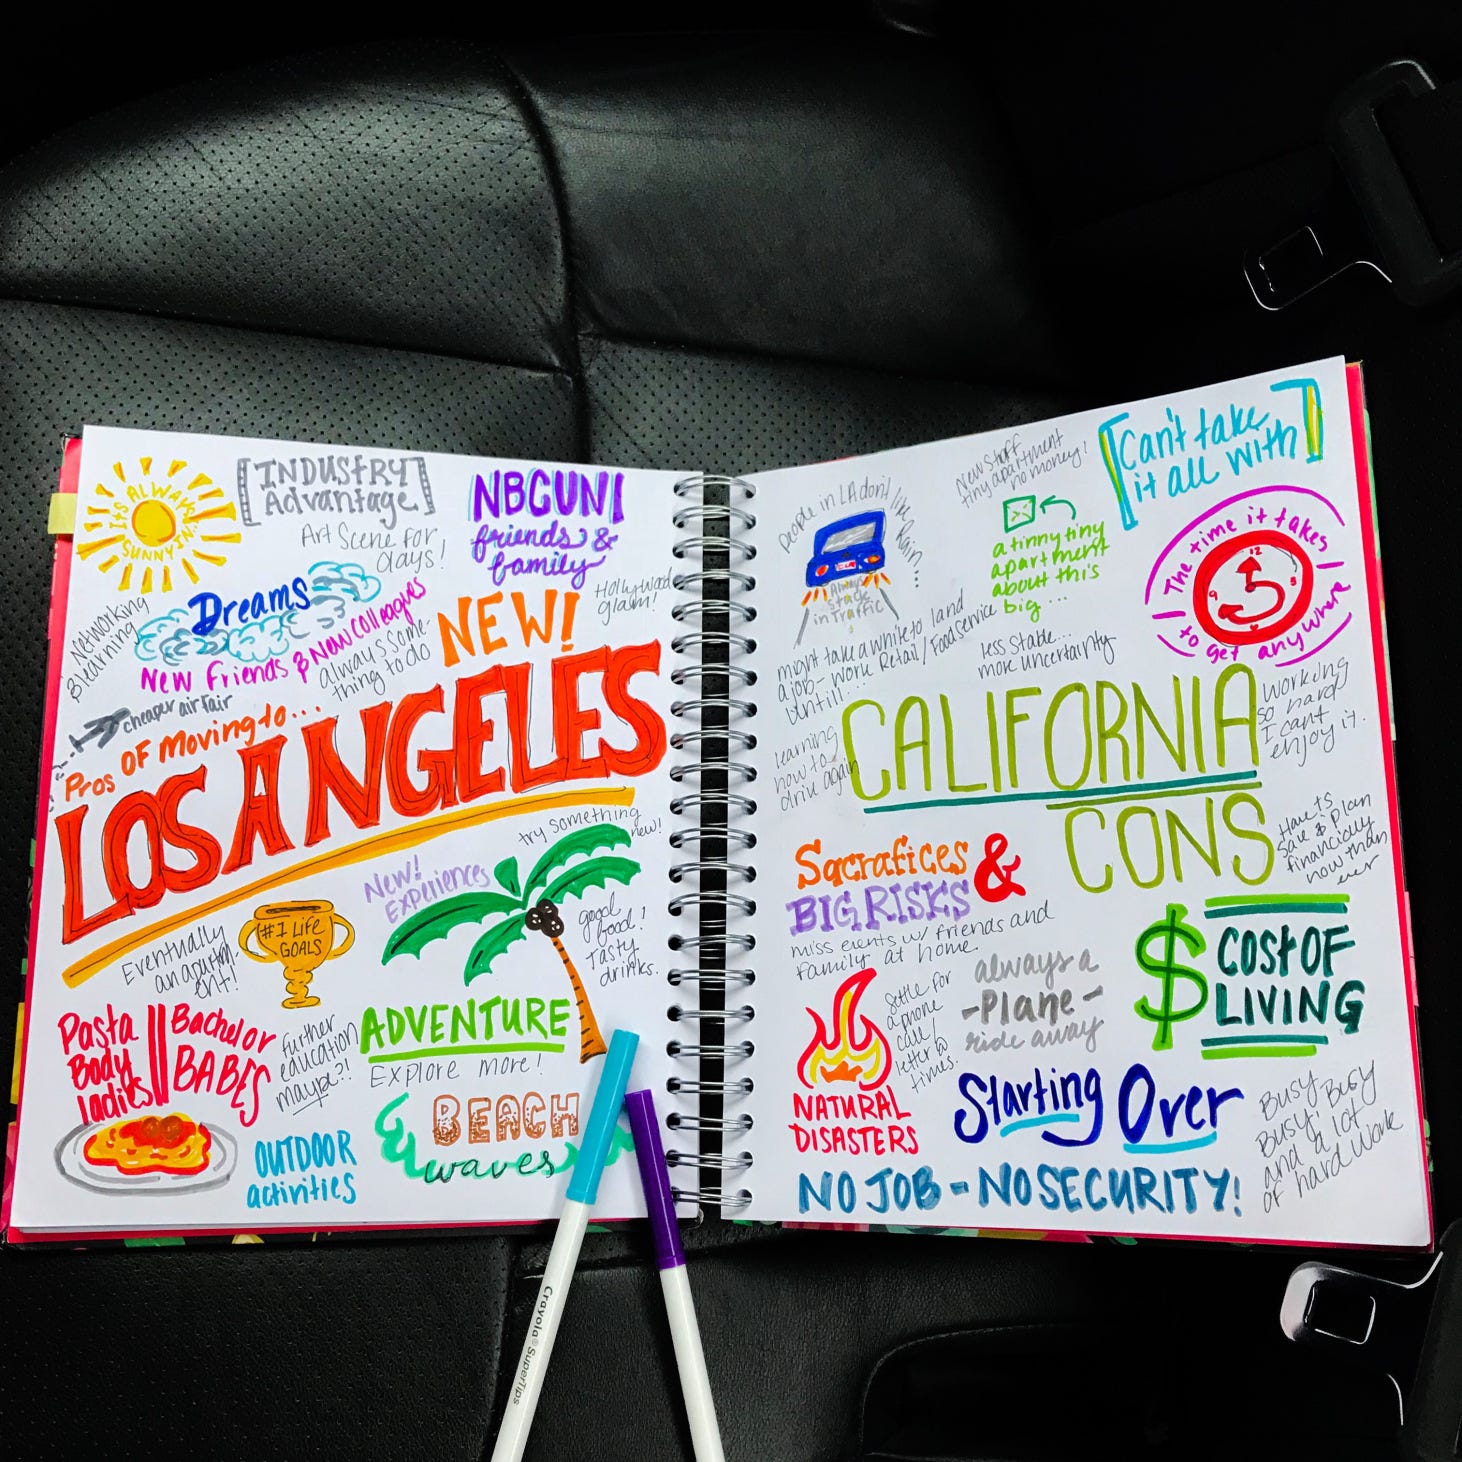 ITS ALWAYS
SUNNY IN
INDUSTRY
Advantage
Art Scene for
days!
NBCUNI
friends &
family
Hollywood
glam!
Networking
& learning
Dreams
New friends & New Colleagues
always some-
thing to do
NEW!
cheaper airfair
Pros OF Moving to...
LOS ANGELES
try something
new!
New!
EXPERIENCES
#1 LIFE
GOALS
Eventually
an apartm-
ent!
good
food!
Tasty
drinks.
Pasta
Body
ladies
Bachelor
BABES
further
education
maybe?!
ADVENTURE
Explore more!
BEACH
waves
OUTDOOR
activities
People in LA don't like rain...
Always
stuck
in Traffic
New Stuff
tiny apartment
no money!
a tinny tiny
apartment
about this
big...
[Can't take
it all with]
The time it takes
to get anywhere
12
3
9
might take a while to land
a job - work Retail/Foodservice
untill...
less stable...
more uncertainty
learning
how to
drive again
CALIFORNIA
CONS
Working
so hard
I can't
enjoy it.
Have to
save & plan
financially
now than
ever
Sacrafices &
BIG RISKS
miss events w/ friends and
family at home.
Settle for
a phone
call/
letter @
times.
always a
-Plane-
ride away
$ COST OF
LIVING
NATURAL
DISASTERS
Starting Over
Busy
Busy! Busy
and a lot
of hard work
NO JOB - NO SECURITY!
Crayola® SuperTips